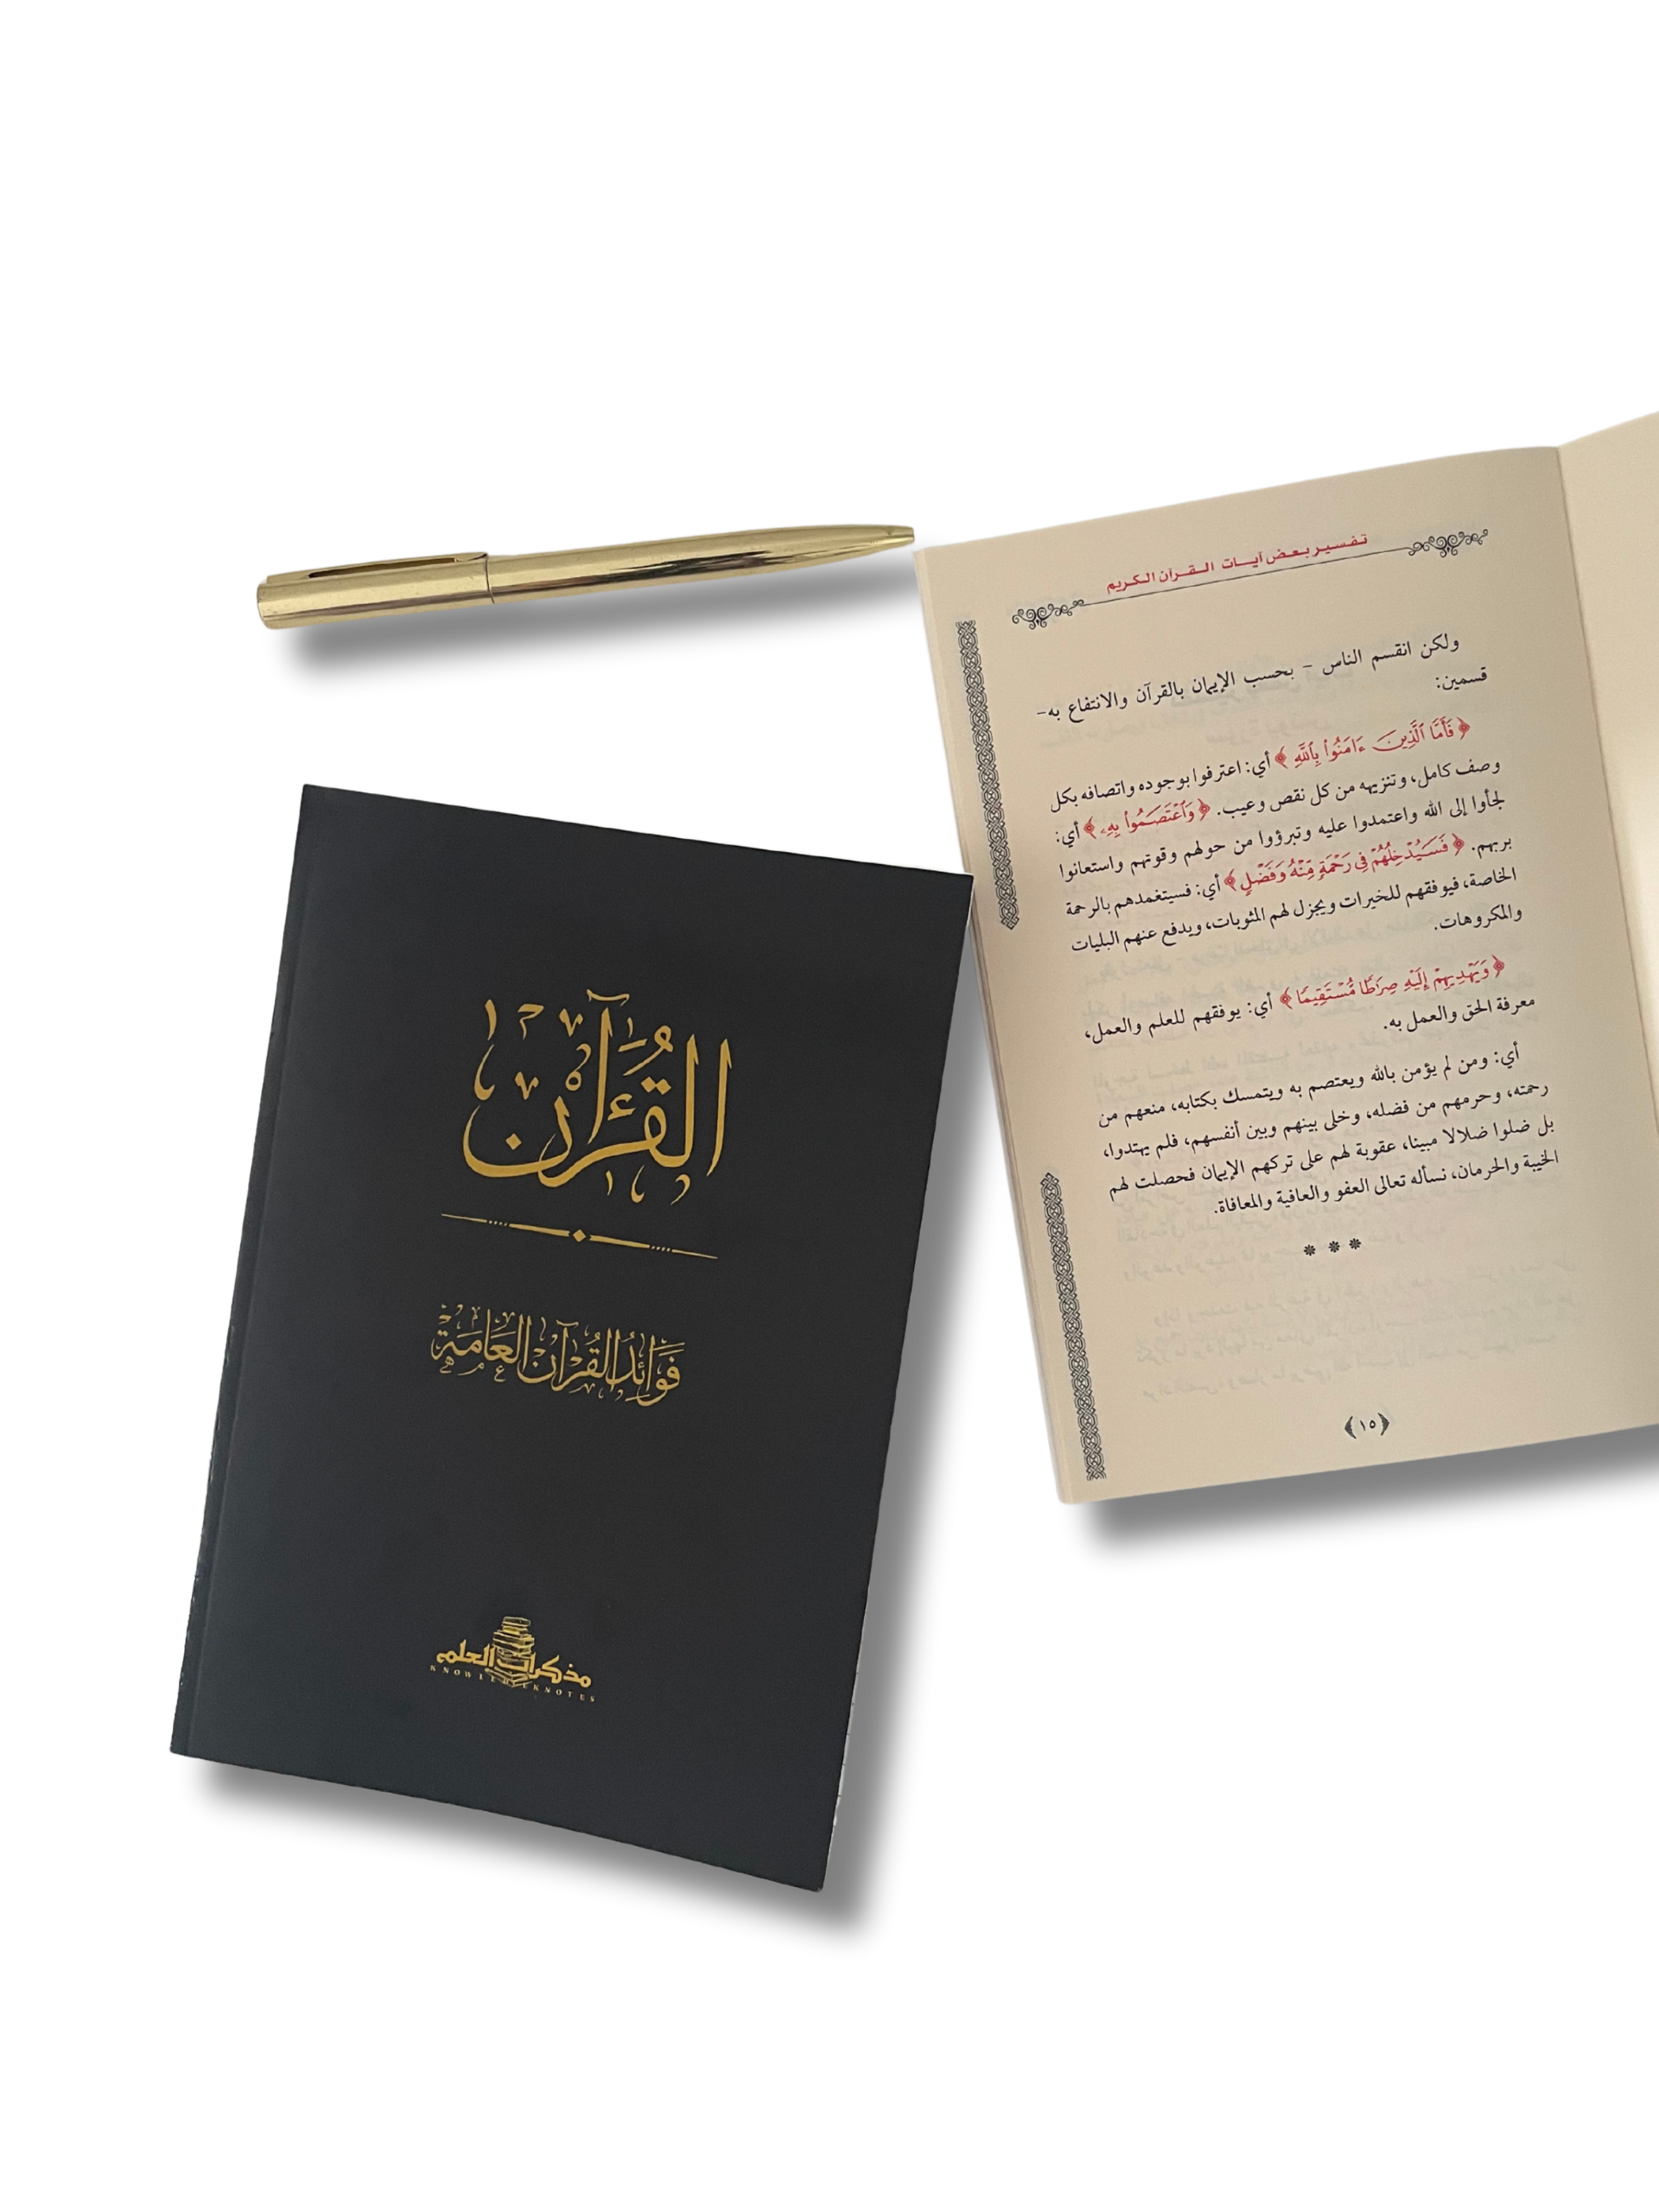 تفسير بعض آيات القرآن الكريم
ولكن انقسم الناس – بحسب الإيمان بالقرآن والانتفاع به–
قسمين:
﴿فَأَمَّا ٱلَّذِينَ ءَامَنُواْ بِٱللَّهِ﴾ أي: اعترفوا بوجوده واتصافه بكل
وصف كامل، وتنزيهه من كل نقص وعيب. ﴿وَٱعۡتَصَمُواْ بِهِۦ﴾ أي:
لجأوا إلى الله واعتمدوا عليه وتبرؤوا من حولهم وقوتهم واستعانوا
بربهم. ﴿فَسَيُدۡخِلُهُمۡ فِي رَحۡمَةٖ مِّنۡهُ وَفَضۡلٖ﴾ أي: فسيتغمدهم بالرحمة
الخاصة، فيوفقهم للخيرات ويجزل لهم المثوبات، ويدفع عنهم البليات
والمكروهات.
﴿وَيَهۡدِيهِمۡ إِلَيۡهِ صِرَٰطٗا مُّسۡتَقِيمٗا﴾ أي: يوفقهم للعلم والعمل،
معرفة الحق والعمل به.
أي: ومن لم يؤمن بالله ويعتصم به ويتمسك بكتابه، منعهم من
رحمته، وحرمهم من فضله، وخلى بينهم وبين أنفسهم، فلم يهتدوا،
بل ضلوا ضلالا مبينا، عقوبة لهم على تركهم الإيمان فحصلت لهم
الخيبة والحرمان، نسأله تعالى العفو والعافية والمعافاة.
* * *
﴿١٥﴾
القُرْآن
فَوَائِدُ القُرْآنِ العَامَّة
مذكرات العلم
KNOWLEDGEKNOTES